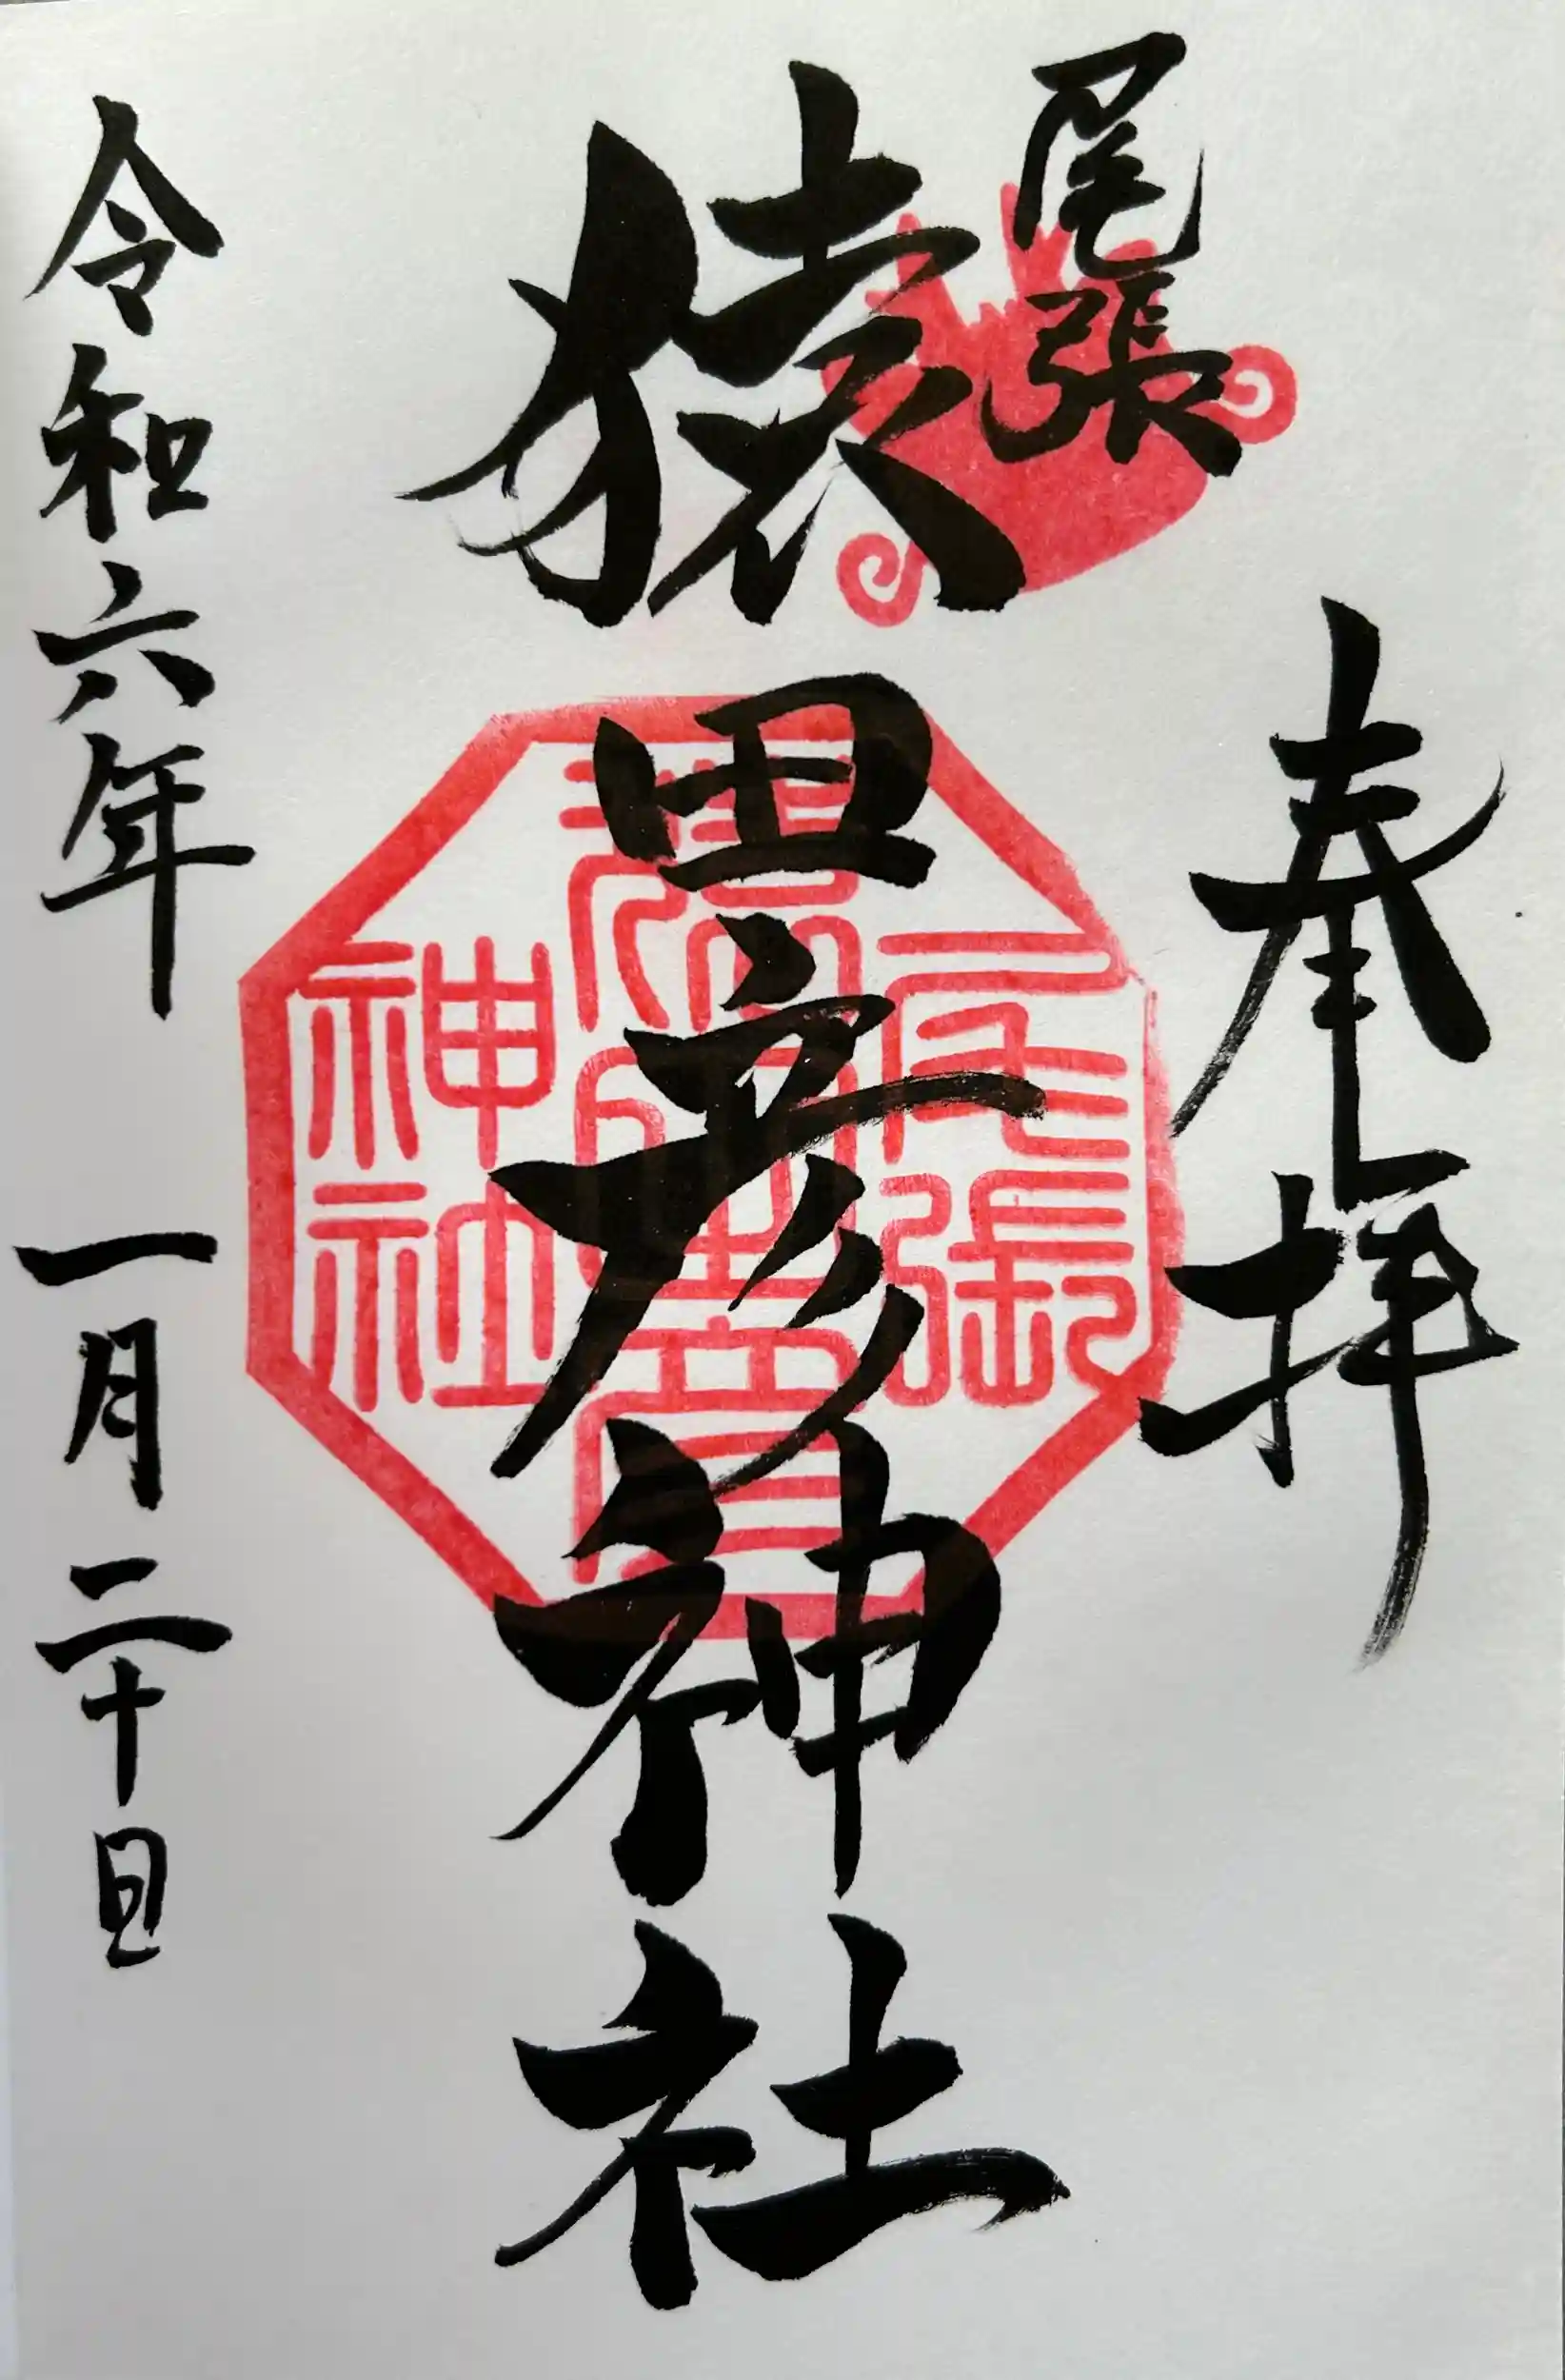 奉拝
尾張
猿田彦神社
令和六年 一月二十日
尾張
猿田彦
神社